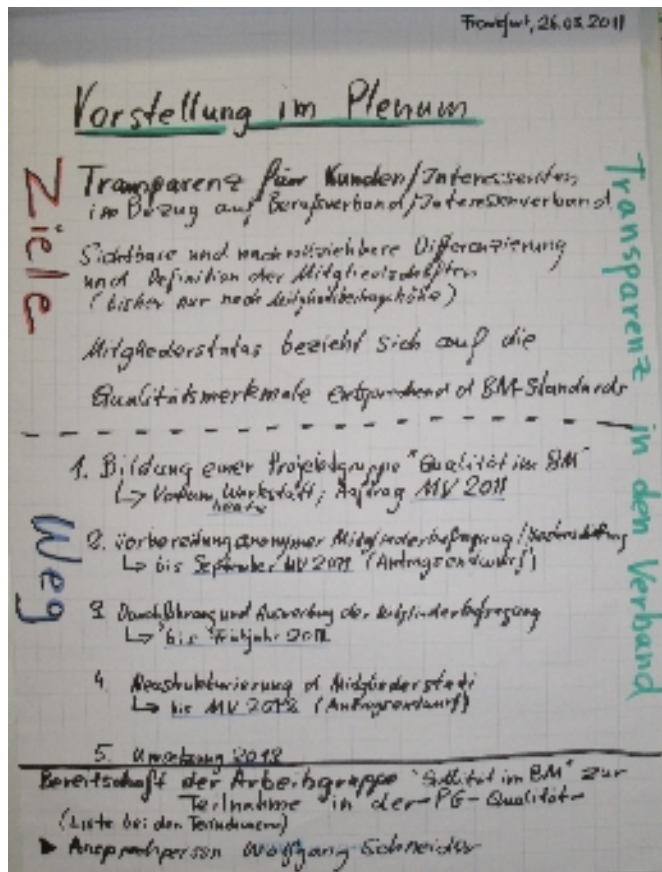 Frankfurt, 26.03.2011
Vorstellung im Plenum
Ziele
Transparenz für Kunden/Interessenten
im Bezug auf Berufsverband/Interessenverband
Sichtbare und nachvollziehbare Differenzierung
und Definition der Mitgliedschaften
(bisher nur nach Mitgliedsbeitragshöhe)
Mitgliederstatus bezieht sich auf die
Qualitätsmerkmale entsprechend d BM-Standards
Transparenz in den Verband
Weg
1. Bildung einer Projektgruppe "Qualität im BM"
↳ Votum Werkstatt, Auftrag MV 2011
heute
2. Vorbereitung anonymer Mitgliederbefragung/
↳ bis September MV 2011 (Antragsentwurf)
3. Durchführung und Auswertung der Mitgliederbefragung
↳ bis Frühjahr
4. Neustrukturierung d Mitgliederstati
↳ bis MV 2012 (Antragsentwurf)
5. Umsetzung 2012
Bereitschaft der Arbeitsgruppe "Qualität im BM" zur
Teilnahme in der PG-Qualität
(Liste bei den Teilnehmern)
▶ Ansprechperson Wolfgang Schneider